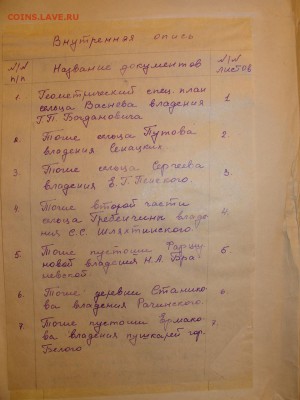 СОИНС.LAVE.RU
Внутренняя опись
N/N п/п Название документов N/N листов
1. Геометрический спец. план 1.
сельца Васнева владения
Г.П. Богдановича
2. Тоже сельца Путова 2.
владения Сенацких
3. Тоже сельца Сергеева 3.
владения Е.Г. Пенского.
4. Тоже второй части 4.
сельца Гребенчина владе
ния С.С. Шляхтинского.
5. Тоже пустоши 5.
новой владения Н.А. Бра
невской
6. Тоже деревни Станико 6
ва владения Рачинского.
7. Тоже пустоши Ермако 7.
ва владения пушкарей гор.
Белого